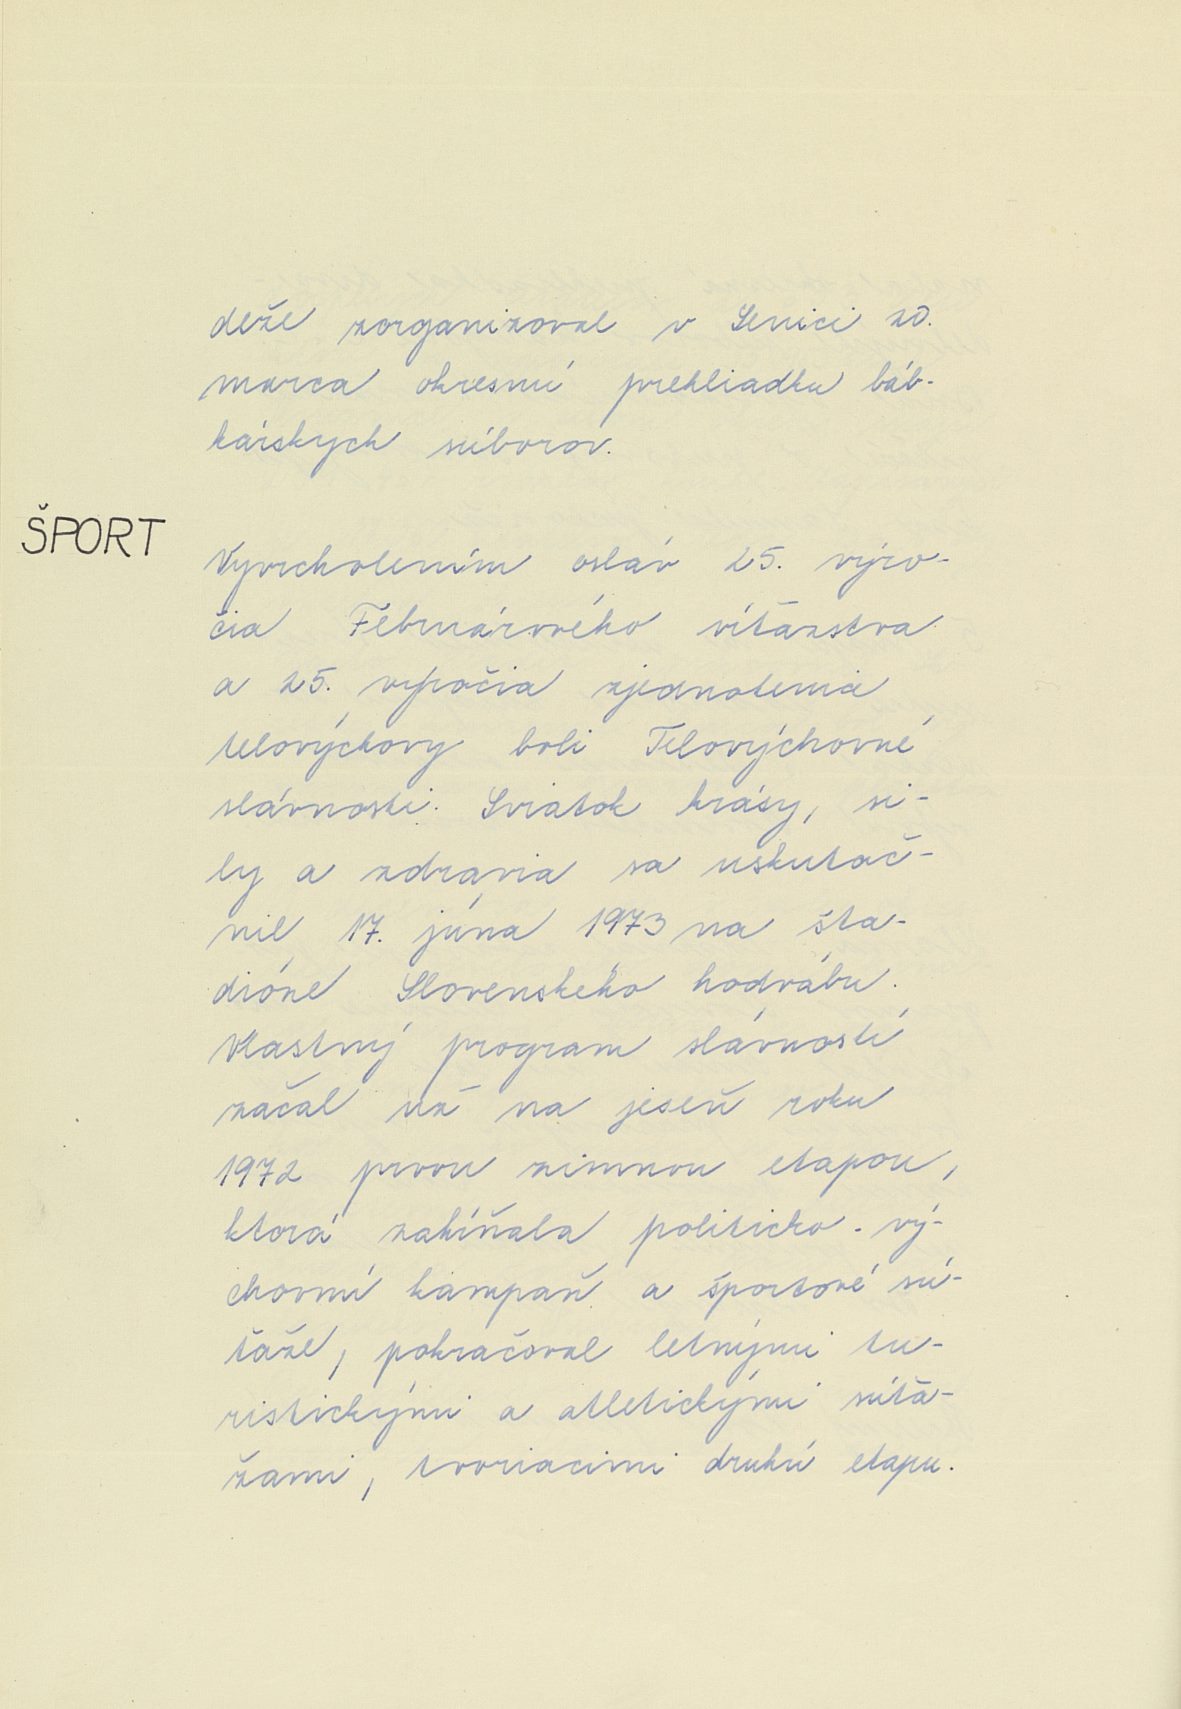 deže zorganizoval v Senici 20.
marca okresnú prehliadku báb-
kárskych súborov.
ŠPORT
Vyvrcholením osláv 25. výro-
čia Februárového víťazstva
a 25. výročia zjednotenia
telovýchovy boli Telovýchovné
slávnosti. Sviatok krásy, si-
ly a zdravia sa uskutoč-
nil 17. júna 1973 na šta-
dióne Slovenského hodvábu.
Vlastný program slávností
začal už na jeseň roku
1972 prvou zimnou etapou,
ktorá zahŕňala politicko-vý-
chovnú kampaň a športové sú-
ťaže, pokračoval letnými tu-
ristickými a atletickými súťa-
žami, tvoriacimi druhú etapu.